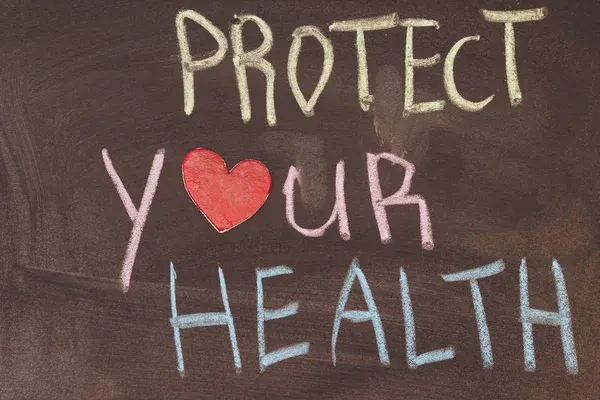 PROTECT
Y❤UR
HEALTH